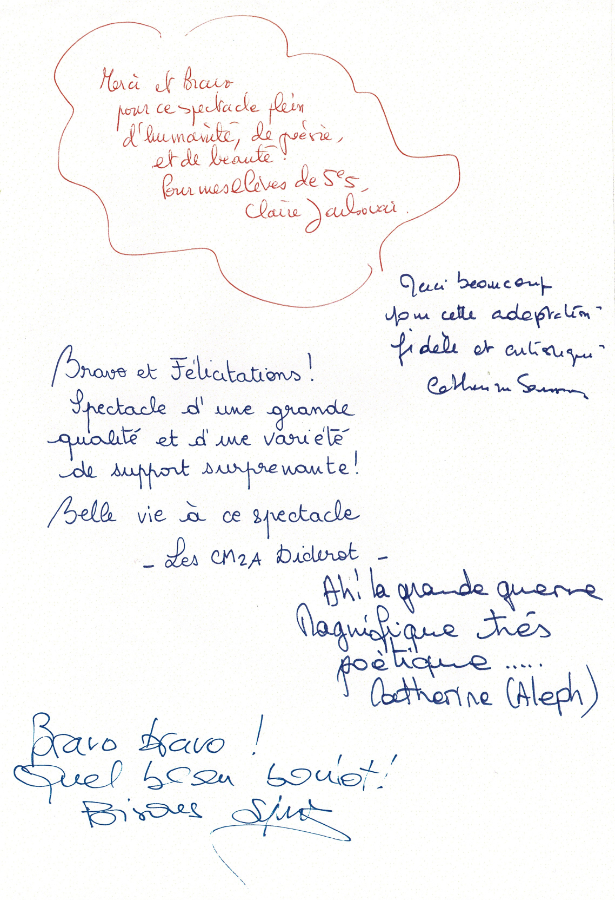 Merci et Bravo
pour ce spectacle plein
d'humanité, de poésie,
et de beauté !
Pour mes élèves de 5e5,
Claire
Merci beaucoup
pour cette adaptation
fidèle et
Catherine
Bravo et Félicitations !
Spectacle d'une grande
qualité et d'une variété
de support surprenante !
Belle vie à ce spectacle
- Les CM2A Diderot -
Ah! la grande guerre
Magnifique très
poètique .....
Catherine (Aleph)
Bravo bravo !
Quel beau boulot !
Bisous